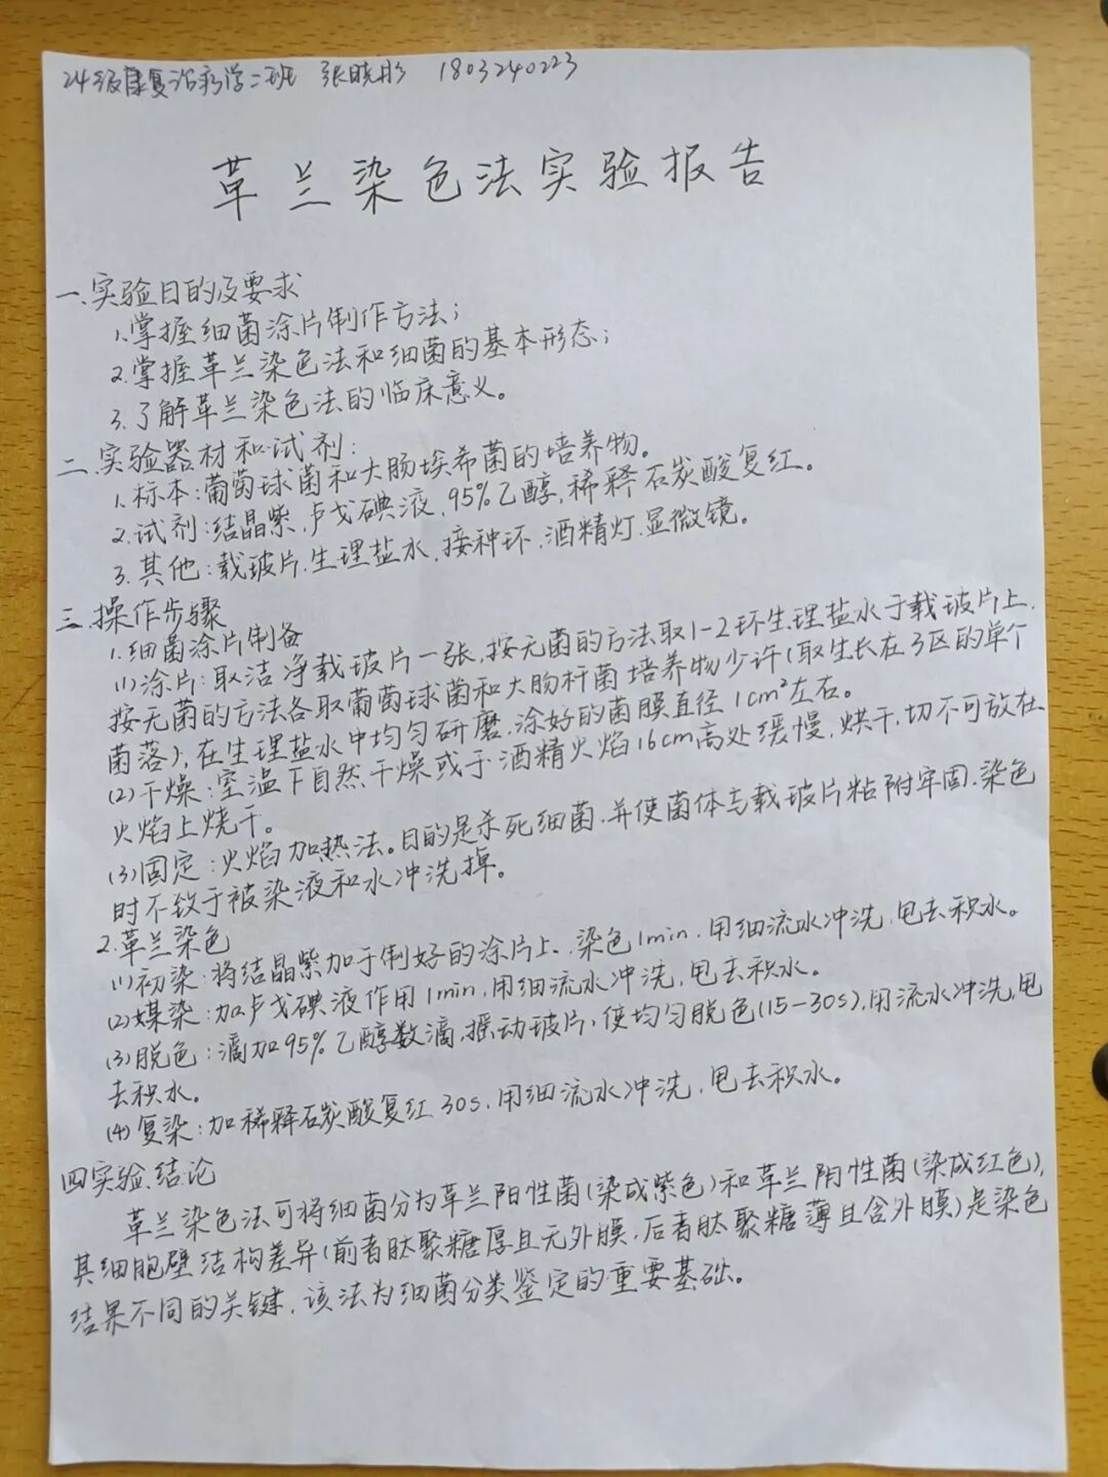 24级康复治疗学二班 张晓彤 1803240223
革兰染色法实验报告
一.实验目的及要求
1.掌握细菌涂片制作方法;
2.掌握革兰染色法和细菌的基本形态;
3.了解革兰染色法的临床意义。
二.实验器材和试剂:
1.标本:葡萄球菌和大肠埃希菌的培养物。
2.试剂:结晶紫,卢戈碘液,95%乙醇,稀释石炭酸复红。
3.其他:载玻片.生理盐水.接种环.酒精灯.显微镜。
三.操作步骤
1.细菌涂片制备
(1)涂片:取洁净载玻片一张,按无菌的方法取1-2环生理盐水于载玻片上.
按无菌的方法各取葡萄球菌和大肠杆菌培养物少许(取生长在3区的单个
菌落),在生理盐水中均匀研磨.涂好的菌膜直径1cm²左右。
(2)干燥:室温下自然干燥或于酒精火焰16cm高处缓慢.烘干,切不可放在
火焰上烧干。
(3)固定:火焰加热法。目的是杀死细菌.并使菌体与载玻片粘附牢固.染色
时不致于被染液和水冲洗掉。
2.革兰染色
(1)初染:将结晶紫加于制好的涂片上.染色1min.用细流水冲洗.甩去积水。
(2)媒染:加卢戈碘液作用1min.用细流水冲洗,甩去积水。
(3)脱色:滴加95%乙醇数滴,摇动玻片,使均匀脱色(15-30s),用流水冲洗,甩
去积水。
(4)复染:加稀释石炭酸复红30s.用细流水冲洗.甩去积水。
四实验结论
革兰染色法可将细菌分为革兰阳性菌(染成紫色)和革兰阴性菌(染成红色),
其细胞壁结构差异(前者肽聚糖厚且无外膜.后者肽聚糖薄且含外膜)是染色
结果不同的关键.该法为细菌分类鉴定的重要基础。